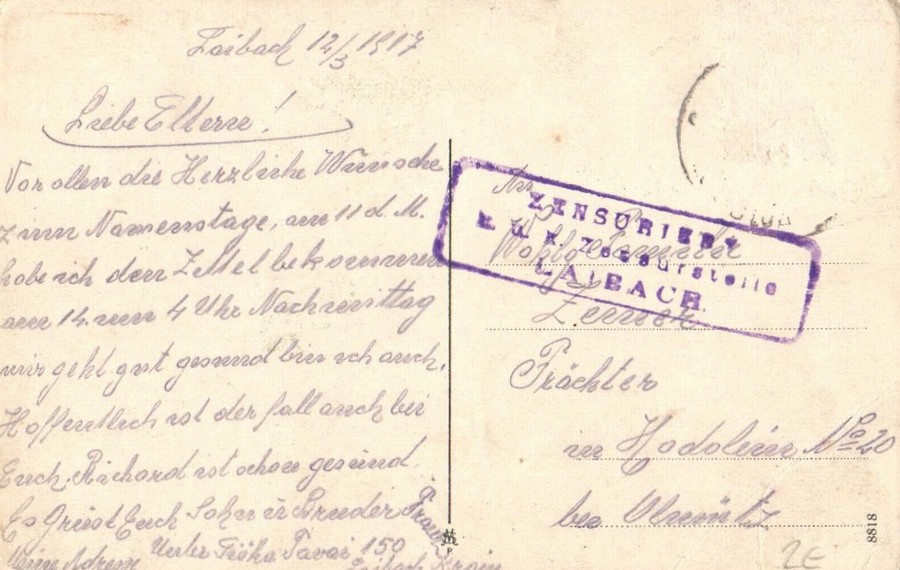 Laibach 12/3 1917
Liebe Eltern!
Vor ollen die Herzliche Wünsche
zum Namenstage, am 11 d. M.
habe ich den Zettel bekommen
am 14. um 4 Uhr Nachmittag
mir geht gut gesund bin ich auch.
Hoffentlich ist der fall auch bei
Euch. Richard ist schon gesund.
Es Grüst Euch Sohn u Bruder Franz
Meine Adresse 150
Laibach Krain
An
ZENSURIERT
K. u. K. Zensurstelle
LAIBACH.
Familie
Prächter
in Hodolein No 20
bei Olmütz
8818
2E